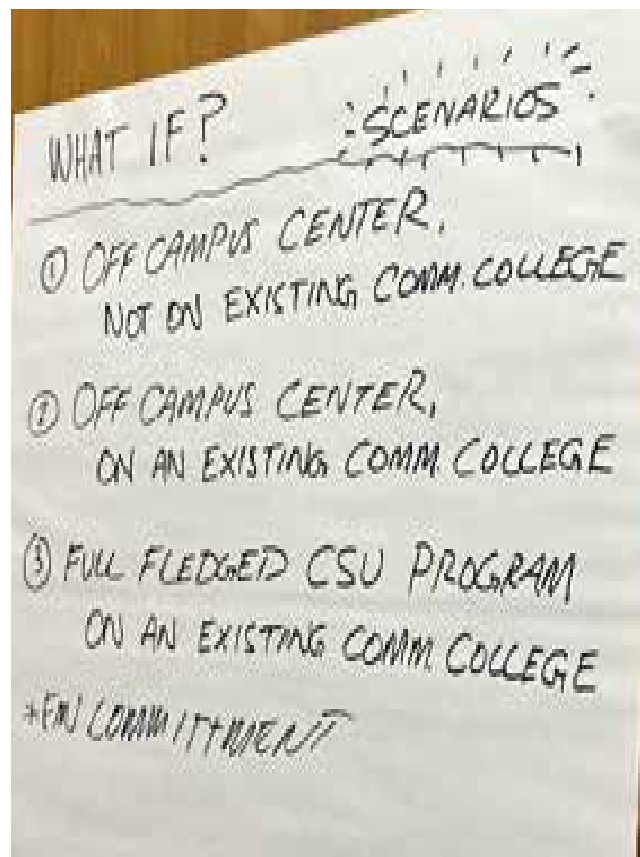 WHAT IF? SCENARIOS
① OFF CAMPUS CENTER,
NOT ON EXISTING COMM. COLLEGE
② OFF CAMPUS CENTER,
ON AN EXISTING COMM. COLLEGE
③ FULL FLEDGED CSU PROGRAM
ON AN EXISTING COMM. COLLEGE
+FIN COMMITTMENT